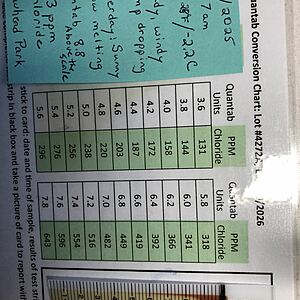 Quantab Conversion Chart: Lot #4272A, /2026
2025
7 am
28°F/-2.2C
windy
dropping
Sunny
melting
8.8
Above the
scale
ppm
Park
Quantab Units PPM Chloride
3.6 131
3.8 144
4.0 158
4.2 172
4.4 187
4.6 203
4.8 220
5.0 238
5.2 256
5.4 276
5.6 296
Quantab Units PPM Chloride
5.8 318
6.0 341
6.2 366
6.4 392
6.6 419
6.8 449
7.0 482
7.2 516
7.4 554
7.6 596
7.8 643
stick to card: date and time of sample, results of test
strip in black box and take a picture of card to report